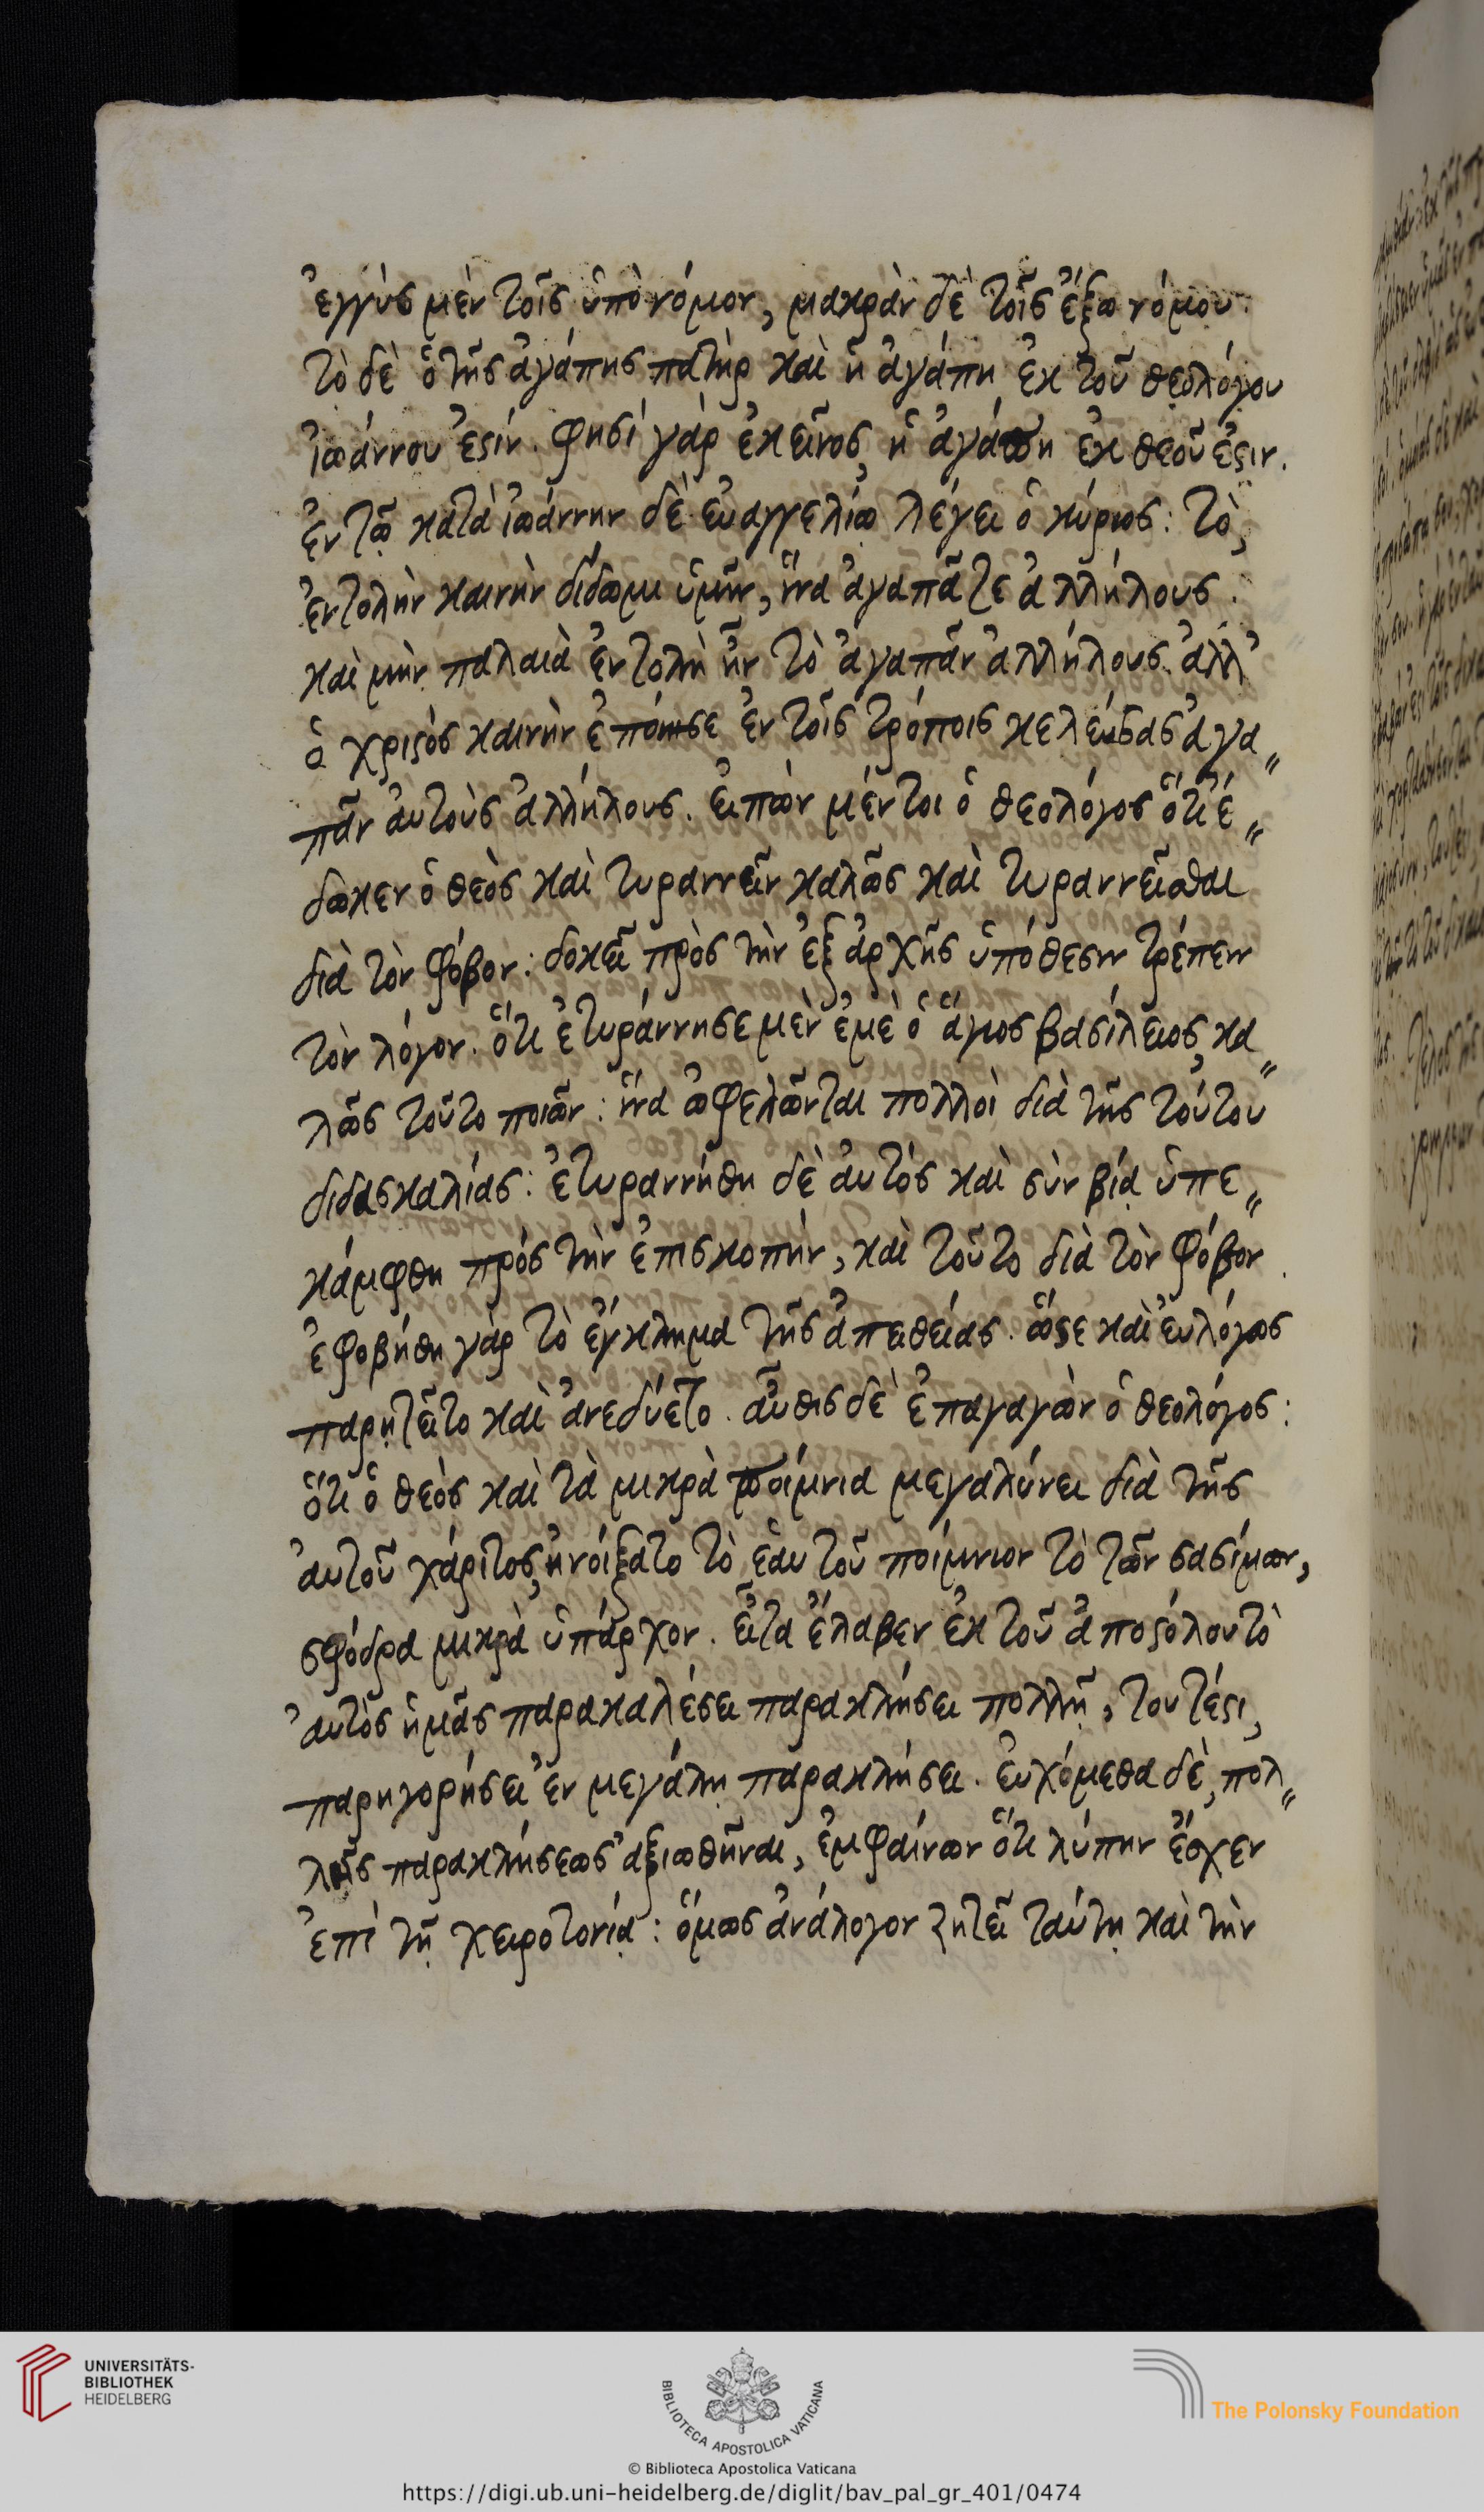 ἐγγὺς μὲν τοῖς ὑπὸ νόμον, μακρὰν δὲ τοῖς ἔξω νόμου.
τὸ δὲ ὁ τῆς ἀγάπης πατὴρ καὶ ἡ ἀγάπη ἐκ τοῦ θεολόγου
ἰωάννου ἐστίν. φησὶ γὰρ ἐκεῖνος, ἡ ἀγάπη ἐκ θεοῦ ἐστιν.
ἐν τῷ κατὰ ἰωάννην δὲ εὐαγγελίω λέγει ὁ κύριος: τὸ,
ἐντολὴν καινὴν δίδωμι ὑμῖν, ἵνα ἀγαπᾶτε ἀλλήλους.
καὶ μὴν παλαιὰ ἐντολὴ ἦν τὸ ἀγαπᾶν ἀλλήλους. ἀλλ'
ὁ χριστὸς καινὴν ἐποίησε ἐν τοῖς τρόποις κελεύσας ἀγα〃
πᾶν αὐτοὺς ἀλλήλους. εἰπὼν μέντοι ὁ θεολόγος ὅτι ἔ〃
δωκεν ὁ θεὸς καὶ τυραννεῖν καλῶς καὶ τυραννεῖσθαι
διὰ τὸν φόβον: δοκεῖ πρὸς τὴν ἐξ ἀρχῆς ὑπόθεσιν τρέπειν
τὸν λόγον. ὅτι ἐτυράννησε μὲν ἐμὲ ὁ ἅγιος βασίλειος, κα〃
λῶς τοῦτο ποιῶν: ἵνα ὠφελῶνται πολλοὶ διὰ τῆς τούτου
διδασκαλίας: ἐτυραννήθη δὲ αὐτὸς καὶ σὺν βίᾳ ὑπε〃
κάμφθη πρὸς τὴν ἐπισκοπήν, καὶ τοῦτο διὰ τὸν φόβον.
ἐφοβήθη γὰρ τὸ ἔγκλημα τῆς ἀπειθείας. ὥστε καὶ εὐλόγως
παρῃτεῖτο καὶ ἀνεδύετο. αὖθις δὲ ἐπαγαγὼν ὁ θεολόγος:
ὅτι ὁ θεὸς καὶ τὰ μικρὰ ποίμνια μεγαλύνει διὰ τῆς
αὐτοῦ χάριτος, ἠνοίξατο τὸ ἑαυτοῦ ποίμνιον τὸ τῶν σασίμων,
σφόδρα μικρὰ ὑπάρχον. εἶτα ἔλαβεν ἐκ τοῦ ἀποστόλου τὸ
αὐτὸς ἡμᾶς παρακαλέσει παρακλήσει πολλῇ, τουτέστι,
παρηγορήσει ἐν μεγάλῃ παρακλήσει. εὐχόμεθα δὲ, πολ〃
λῆς παρακλήσεως ἀξιωθῆναι, ἐμφαίνων ὅτι λύπην ἔσχεν
ἐπὶ τῇ χειροτονίᾳ: ὅμως ἀνάλογον ζητεῖ ταύτῃ καὶ τὴν
UNIVERSITÄTS-
BIBLIOTHEK
HEIDELBERG
BIBLIOTECA APOSTOLICA VATICANA
The Polonsky Foundation
© Biblioteca Apostolica Vaticana
https://digi.ub.uni-heidelberg.de/diglit/bav_pal_gr_401/0474